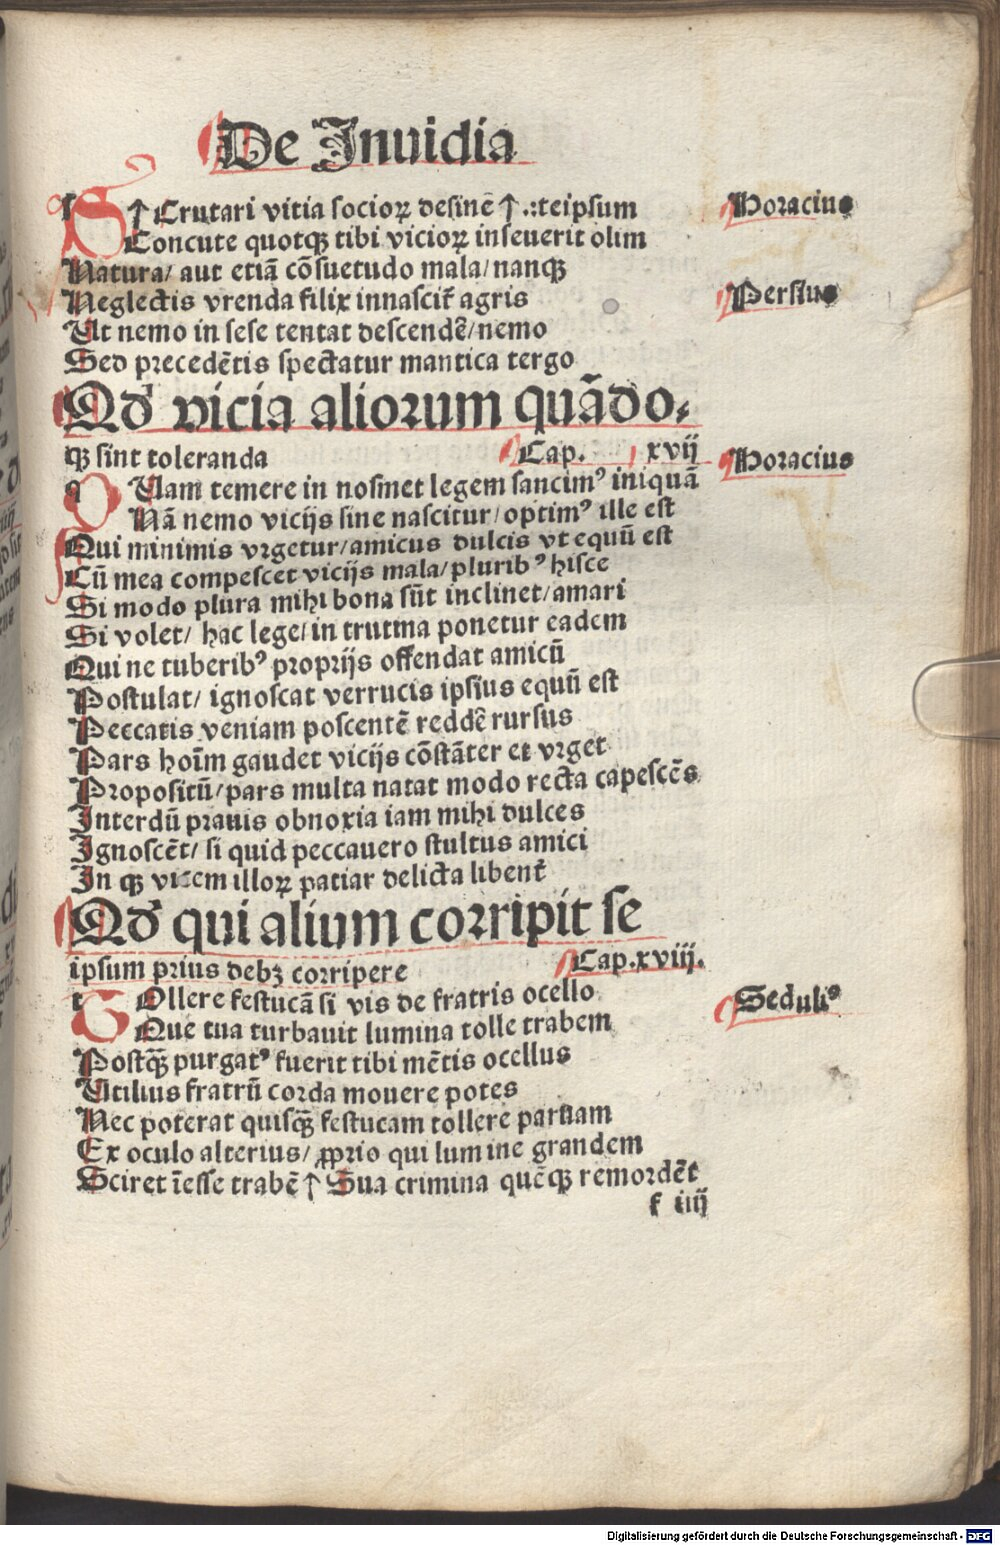 De Inuidia
S ↑ Crutari vitia socioꝝ desinē ↑ .:teipsum
Horacius
Concute quotqꝫ tibi vicioꝝ inseuerit olim
Natura/ aut etiā cōsuetudo mala/ nanqꝫ
Neglectis vrenda filix innascit̄ agris
Persius
Ut nemo in sese tentat descendē/ nemo
Sed precedētis spectatur mantica tergo
Qd vicia aliorum quādo⸗
qꝫ sint toleranda Cap. xvij
Horacius
q Uam temere in nosmet legem sancimꝰ iniquā
Nā nemo vicijs sine nascitur/ optimꝰ ille est
Qui minimis vrgetur/ amicus dulcis vt equū est
Cū mea compescet vicijs mala/ pluribꝰ hisce
Si modo plura mihi bona sūt inclinet/ amari
Si volet/ hac lege/ in trutina ponetur eadem
Qui ne tuberibꝰ proprijs offendat amicū
Postulat/ ignoscat verrucis ipsius equū est
Peccatis veniam poscentē reddē rursus
Pars hoīm gaudet vicijs cōstāter et vrget
Propositū/ pars multa natat modo recta capescēs
Interdū prauis obnoxia iam mihi dulces
Ignoscēt/ si quid peccauero stultus amici
In qꝫ vicem illoꝝ patiar delicta libent̄
Qd qui alium corripit se
ipsum prius debꝫ corripere Cap.xviij.
t Ollere festucā si vis de fratris ocello
Seduliꝰ
Que tua turbauit lumina tolle trabem
Postqꝫ̄ purgatꝰ fuerit tibi mētis ocellus
Utilius fratrū corda mouere potes
Nec poterat quisqꝫ̄ festucam tollere paruam
Ex oculo alterius/ ꝓprio qui lumine grandem
Sciret īesse trabē ↑ Sua crimina quēqꝫ remordēt
f iiij
Digitalisierung gefördert durch die Deutsche Forschungsgemeinschaft - DFG